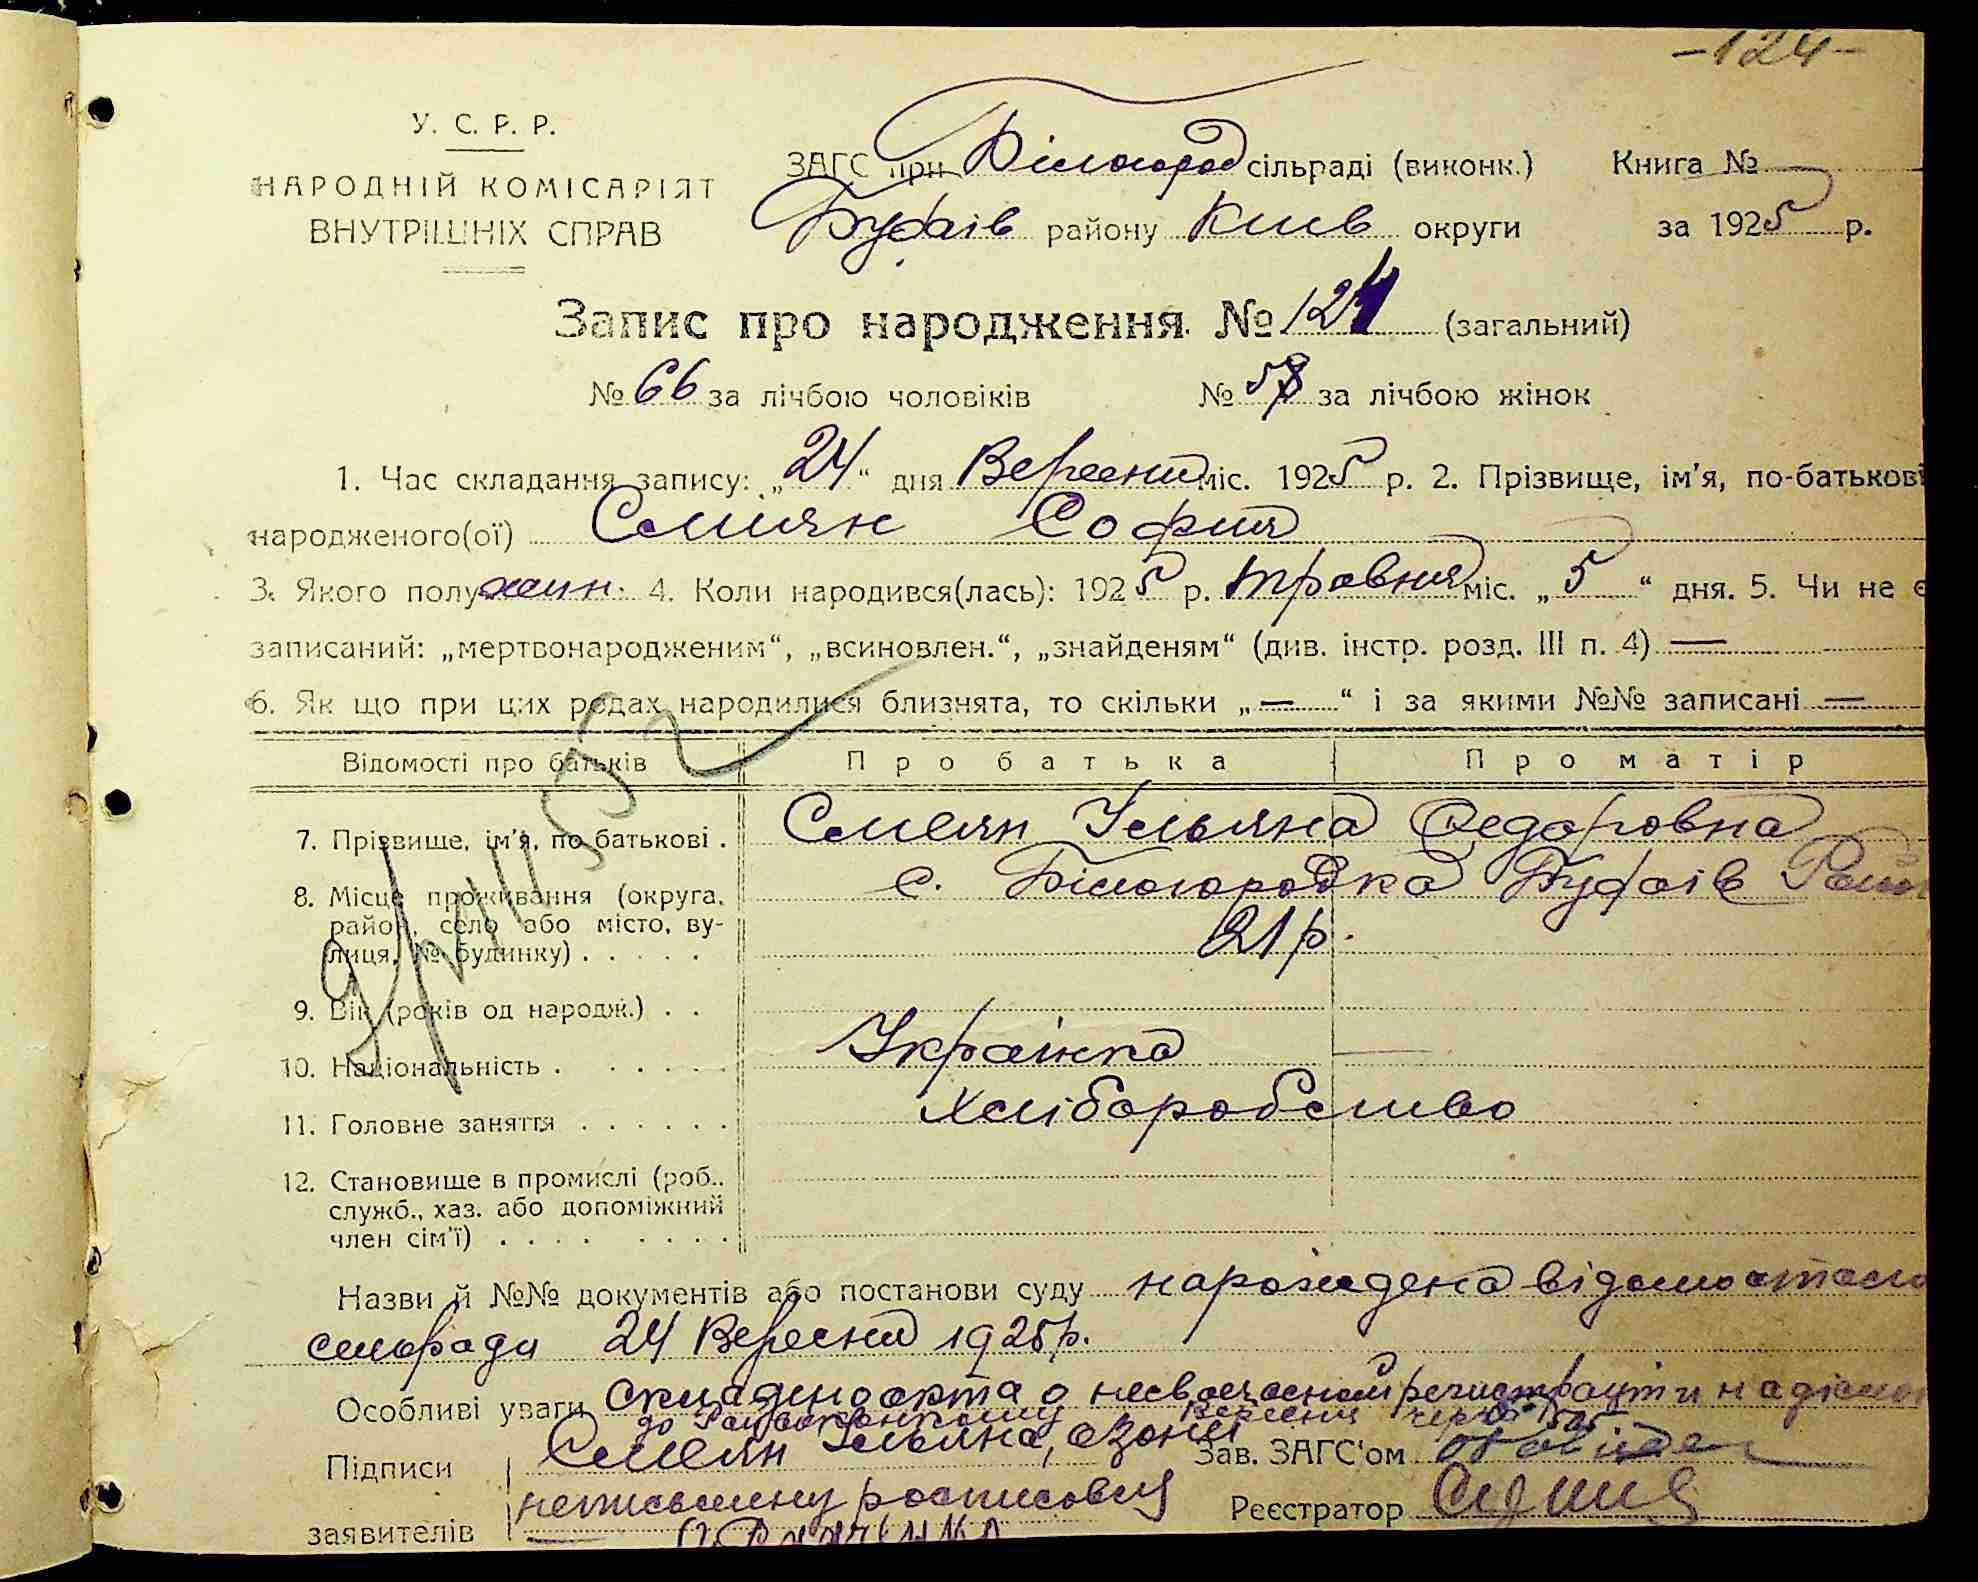 -124-
У. С. Р. Р.
НАРОДНІЙ КОМІСАРІЯТ
ВНУТРІШНІХ СПРАВ
ЗАГС при Білогород сільраді (виконк.) Книга №
Будаїв району Київ округи за 1925 р.
Запис про народження № 124 (загальний)
№ 66 за лічбою чоловіків № 58 за лічбою жінок
1. Час складання запису: „24“ дня Вересня міс. 1925 р. 2. Прізвище, ім'я, по-батькові
народженого(ої) Смиян София
3. Якого полу жін. 4. Коли народився(лась): 1925 р. травня міс. „5“ дня. 5. Чи не є
записаний: „мертвонародженим“, „всиновлен.“, „знайденям“ (див. інстр. розд. III п. 4) —
6. Як що при цих родах народилися близнята, то скільки „—“ і за якими №№ записані —
Відомості про батьків Про батька Про матір
7. Прізвище, ім'я, по батькові . Смеян Ульяна Федоровна
8. Місце проживання (округа, с. Білогородка Будаїв
район, село або місто, ву-
лиця, № будинку) . . . . . 21 р.
9. Вік (років од народж.) . .
10. Національність . . . . . . Українка —
11. Головне заняття . . . . . . Хліборобство
12. Становище в промислі (роб.,
служб., хаз. або допоміжний
член сім'ї) . . . . . . . .
Назви й №№ документів або постанови суду нарождена відомостями
сільради 24 Вересня 1925 р.
Особливі уваги Складено акта о несвоечасной регистрации
Вересня
Підписи Смеян Ульяна, Зав. ЗАГС'ом
неписьмену росписовся Реєстратор
заявителів —